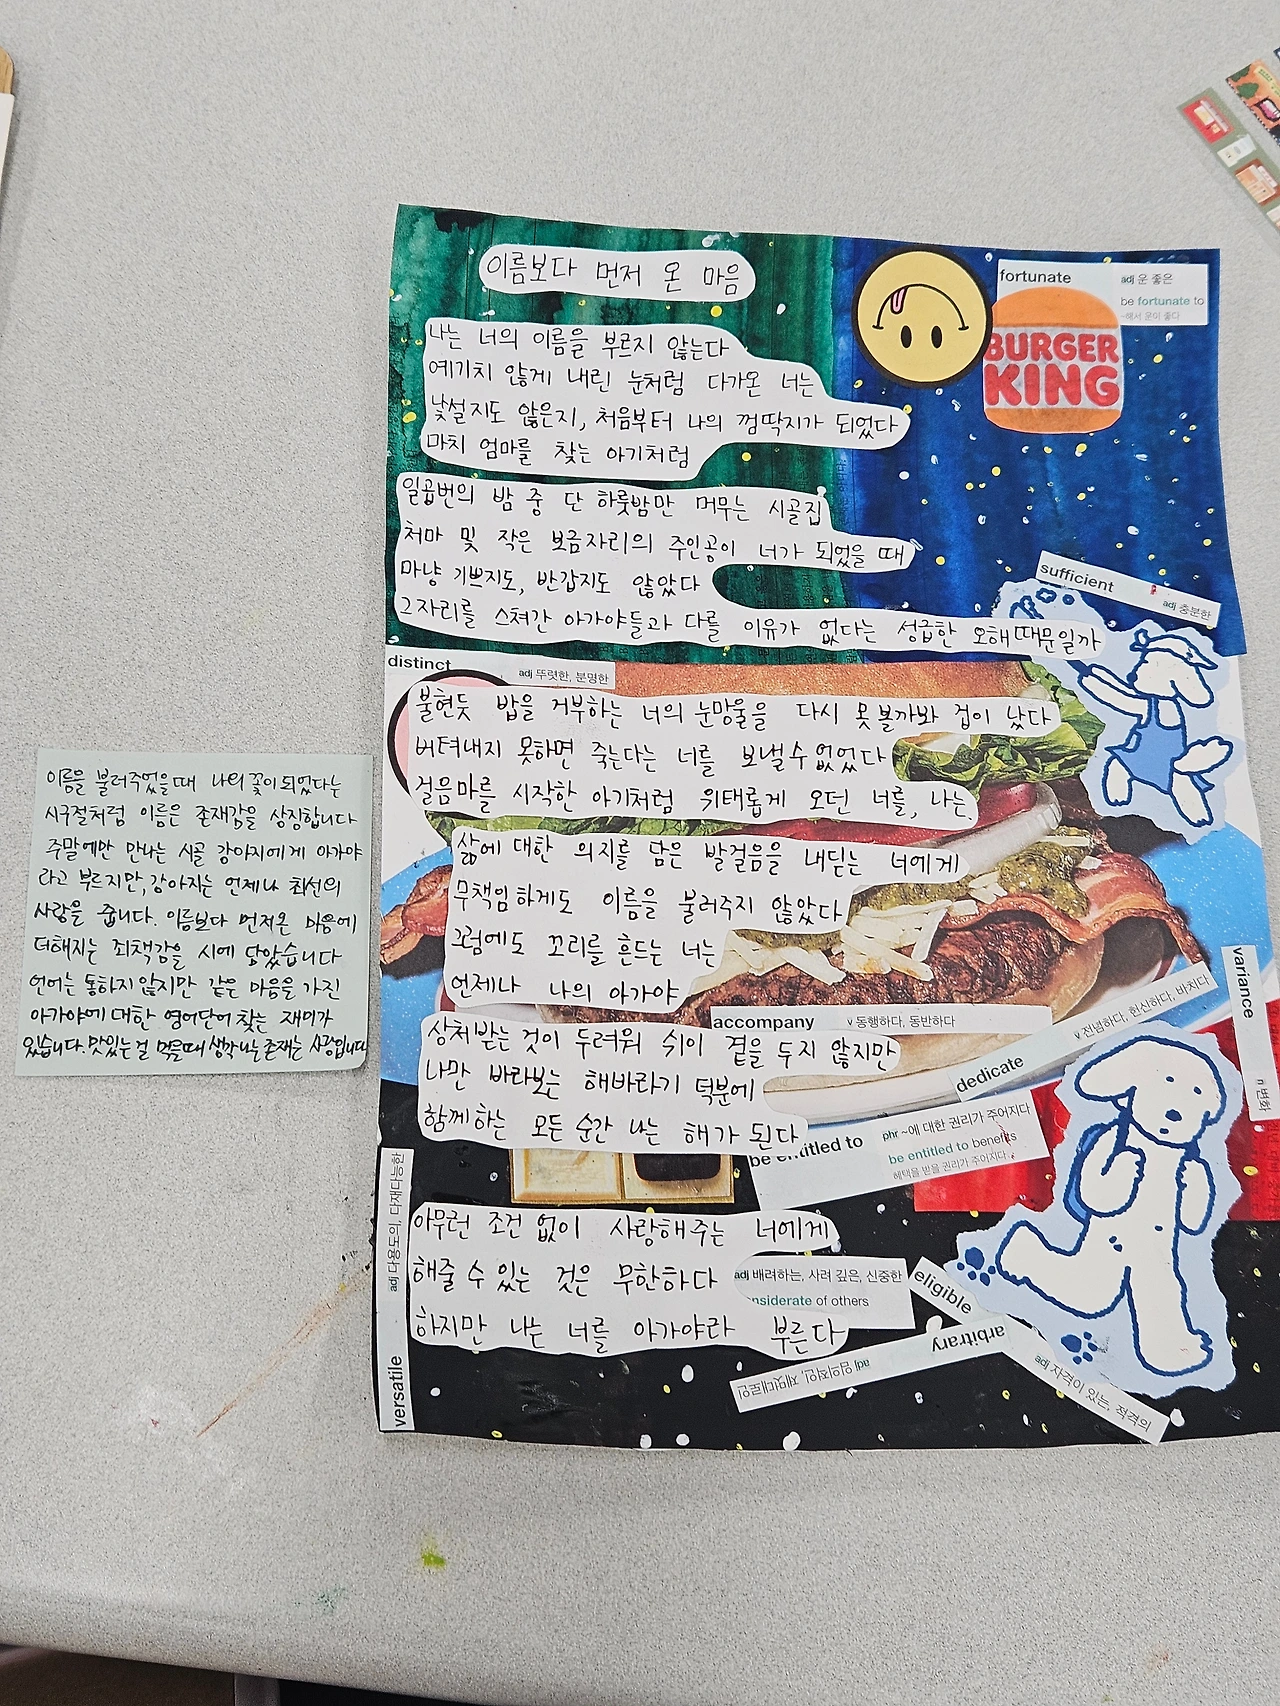 이름보다 먼저 온 마음
나는 너의 이름을 부르지 않는다
예기치 않게 내린 눈처럼 다가온 너는
낯설지도 않은지, 처음부터 나의 껌딱지가 되었다
마치 엄마를 찾는 아기처럼
일곱번의 밤 중 단 하룻밤만 머무는 시골집
처마 및 작은 보금자리의 주인공이 너가 되었을 때
마냥 기쁘지도, 반갑지도 않았다
그자리를 스쳐간 아가야들과 다를 이유가 없다는 성급한 오해 때문일까
불현듯 밥을 거부하는 너의 눈망울을 다시 못 볼까봐 겁이 났다
버텨내지 못하면 죽는다는 너를 보낼 수 없었다
걸음마를 시작한 아기처럼 위태롭게 오던 너를, 나는,
삶에 대한 의지를 담은 발걸음을 내딛는 너에게
무책임하게도 이름을 불러주지 않았다
그럼에도 꼬리를 흔드는 너는
언제나 나의 아가야
상처받는 것이 두려워 쉬이 곁을 두지 않지만
나만 바라보는 해바라기 덕분에
함께하는 모든 순간 나는 해가 된다
아무런 조건 없이 사랑해주는 너에게
해줄 수 있는 것은 무한하다
하지만 나는 너를 아가야라 부른다
fortunate
adj 운 좋은
be fortunate to
~해서 운이 좋다
BURGER
KING
sufficient
adj 충분한
distinct
adj 뚜렷한, 분명한
accompany
v 동행하다, 동반하다
dedicate
v 전념하다, 헌신하다, 바치다
variance
n 변화
be entitled to
phr ~에 대한 권리가 주어지다
be entitled to benefits
혜택을 받을 권리가 주어지다
versatile
adj 다용도의, 다재다능한
adj 배려하는, 사려 깊은, 신중한
nsiderate of others
eligible
adj 자격이 있는, 적격의
arbitrary
adj 임의적인, 제멋대로인
이름을 불러주었을때 나의 꽃이 되었다는
시구절처럼 이름은 존재감을 상징합니다
주말에만 만나는 시골 강아지에게 아가야
라고 부르지만, 강아지는 언제나 최선의
사랑을 줍니다. 이름보다 먼저온 마음에
더해지는 죄책감을 시에 담았습니다
언어는 통하지 않지만 같은 마음을 가진
아가야에 대한 영어단어 찾는 재미가
있습니다. 맛있는걸 먹을때 생각나는 존재는 사랑입니다